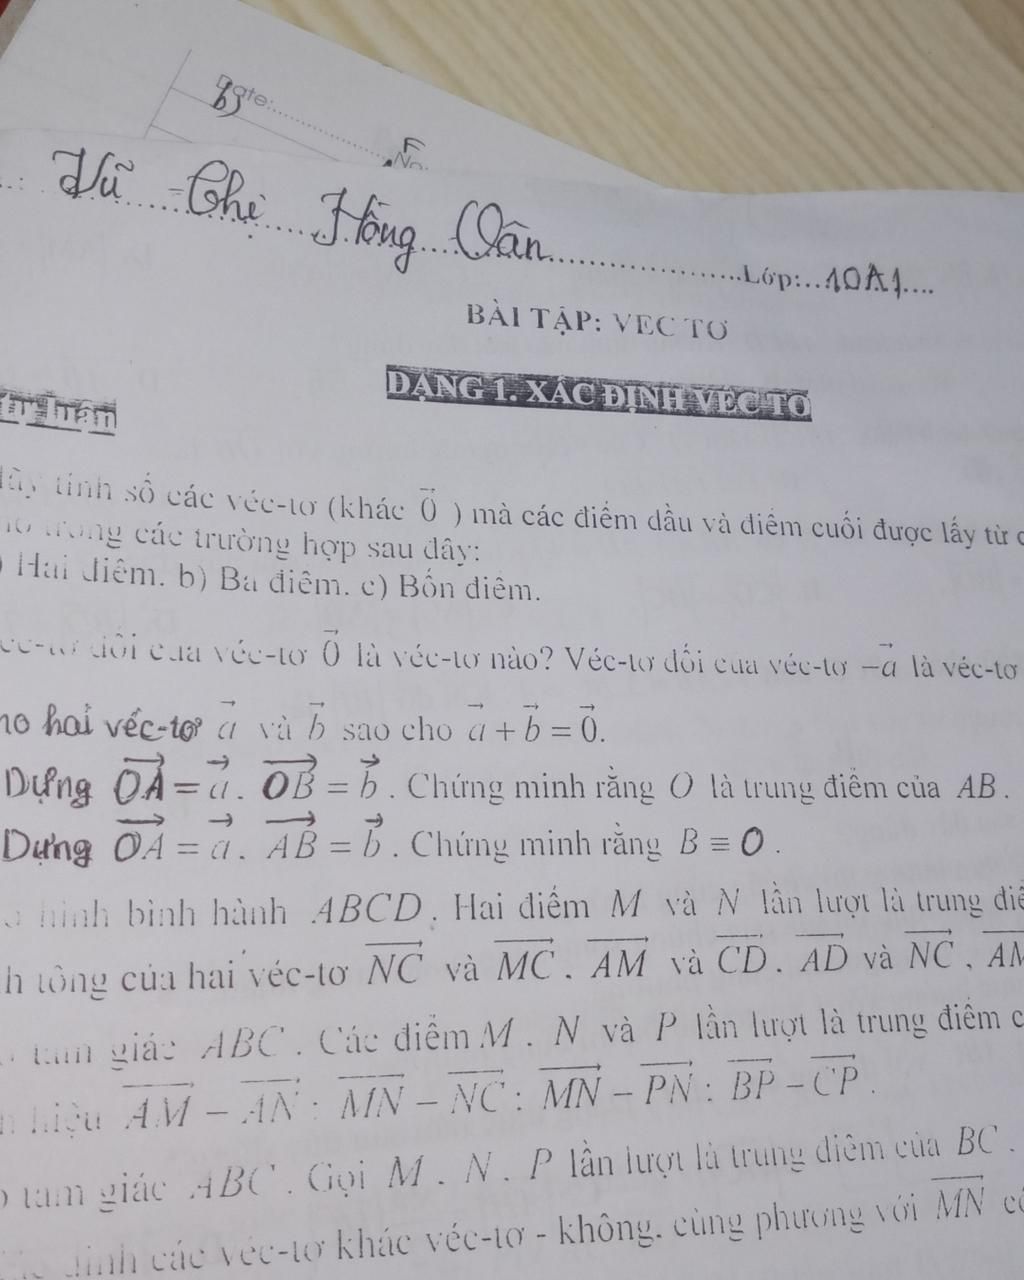 Date:
b)
No.
F
Vũ Thị Hồng Vân Lớp: 10A1
BÀI TẬP: VEC TƠ
DẠNG 1. XÁC ĐỊNH VÉC TƠ
tự luận
Hãy tính số các véc-tơ (khác \vec{0} ) mà các điểm đầu và điểm cuối được lấy từ
trong các trường hợp sau đây:
) Hai điểm. b) Ba điểm. c) Bốn điểm.
đối của véc-tơ \vec{0} là véc-tơ nào? Véc-tơ đối của véc-tơ -\vec{a} là véc-tơ
hai véc-tơ \vec{a} và \vec{b} sao cho \vec{a} + \vec{b} = \vec{0}.
Dựng \overrightarrow{OA} = \vec{a}. \overrightarrow{OB} = \vec{b}. Chứng minh rằng O là trung điểm của AB.
Dựng \overrightarrow{OA} = \vec{a}. \overrightarrow{AB} = \vec{b}. Chứng minh rằng B ≡ O.
hình bình hành ABCD. Hai điểm M và N lần lượt là trung
tổng của hai véc-tơ \overrightarrow{NC} và \overrightarrow{MC}. \overrightarrow{AM} và \overrightarrow{CD}. \overrightarrow{AD} và \overrightarrow{NC}, \overrightarrow{AM}
tam giác ABC. Các điểm M. N và P lần lượt là trung điểm
hiệu \overrightarrow{AM} - \overrightarrow{AN}; \overrightarrow{MN} - \overrightarrow{NC}; \overrightarrow{MN} - \overrightarrow{PN}; \overrightarrow{BP} - \overrightarrow{CP}.
tam giác ABC. Gọi M. N. P lần lượt là trung điểm của BC.
định các véc-tơ khác véc-tơ - không. cùng phương với \overrightarrow{MN}